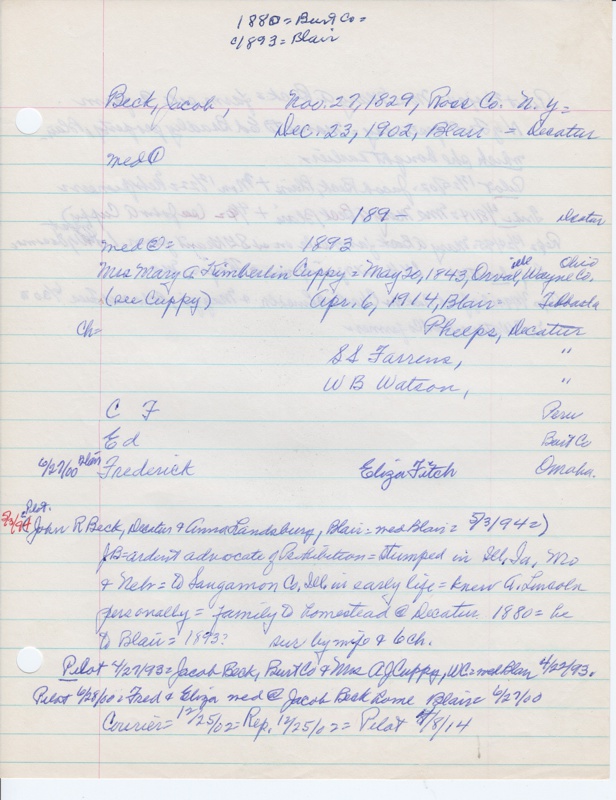 1880 = Burt Co =
c/1893 = Blair
Beck, Jacob, Nov. 27, 1829, Ross Co. N.Y. =
Dec. 23, 1902, Blair = Decatur
med ①
189- Decatur
med ② = 1893
Mrs Mary A Kimberlin Cuppy = May 20, 1843, Orville, Wayne Co. Ohio
(see Cuppy) Apr. 6, 1914, Blair = Tekbaola
Ch = Phelps, Decatur
S S Farrens, "
W B Watson, "
C F Peru
Ed Burt Co
6/27/00 Blair Frederick Eliza Fitch Omaha.
Pilot
5/3/94 John R Beck, Decatur & Anna Landsburg, Blair = med Blair = 5/3/94 = )
JB = ardent advocate of Prohibition = Stumped in Ill, Ia, Mo
& Nebr = to Sangamon Co, Ill. in early life = knew A. Lincoln
personally = family to homestead @ Decatur 1880 = he
to Blair = 1893? sur by wife & 6 ch.
Pilot 4/27/93 = Jacob Beck, Burt Co & Mrs A J Cuppy, WC = med Blair 4/22/93.
Pilot 6/28/00 = Fred & Eliza med @ Jacob Beck home Blair = 6/27/00
Courier = 12/25/02 = Rep. 12/25/02 = Pilot 4/8/14